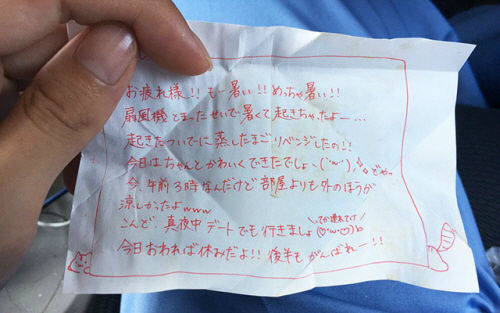 お疲れ様!! もー暑い!! めっちゃ暑い!!
扇風機とまったせいで暑くて起きちゃったよー…
起きたついでに蒸したまごリベンジしたの!!
今日はちゃんとかわいくできたでしょ、(´・w・`)どやっ
今、午前3時なんだけど部屋よりも外のほうが
涼しかったよwww
こんど、真夜中デートでも行きましょ(♡'w'♡)b
今日おわれば休みだよ!! 後半もがんばれー!!